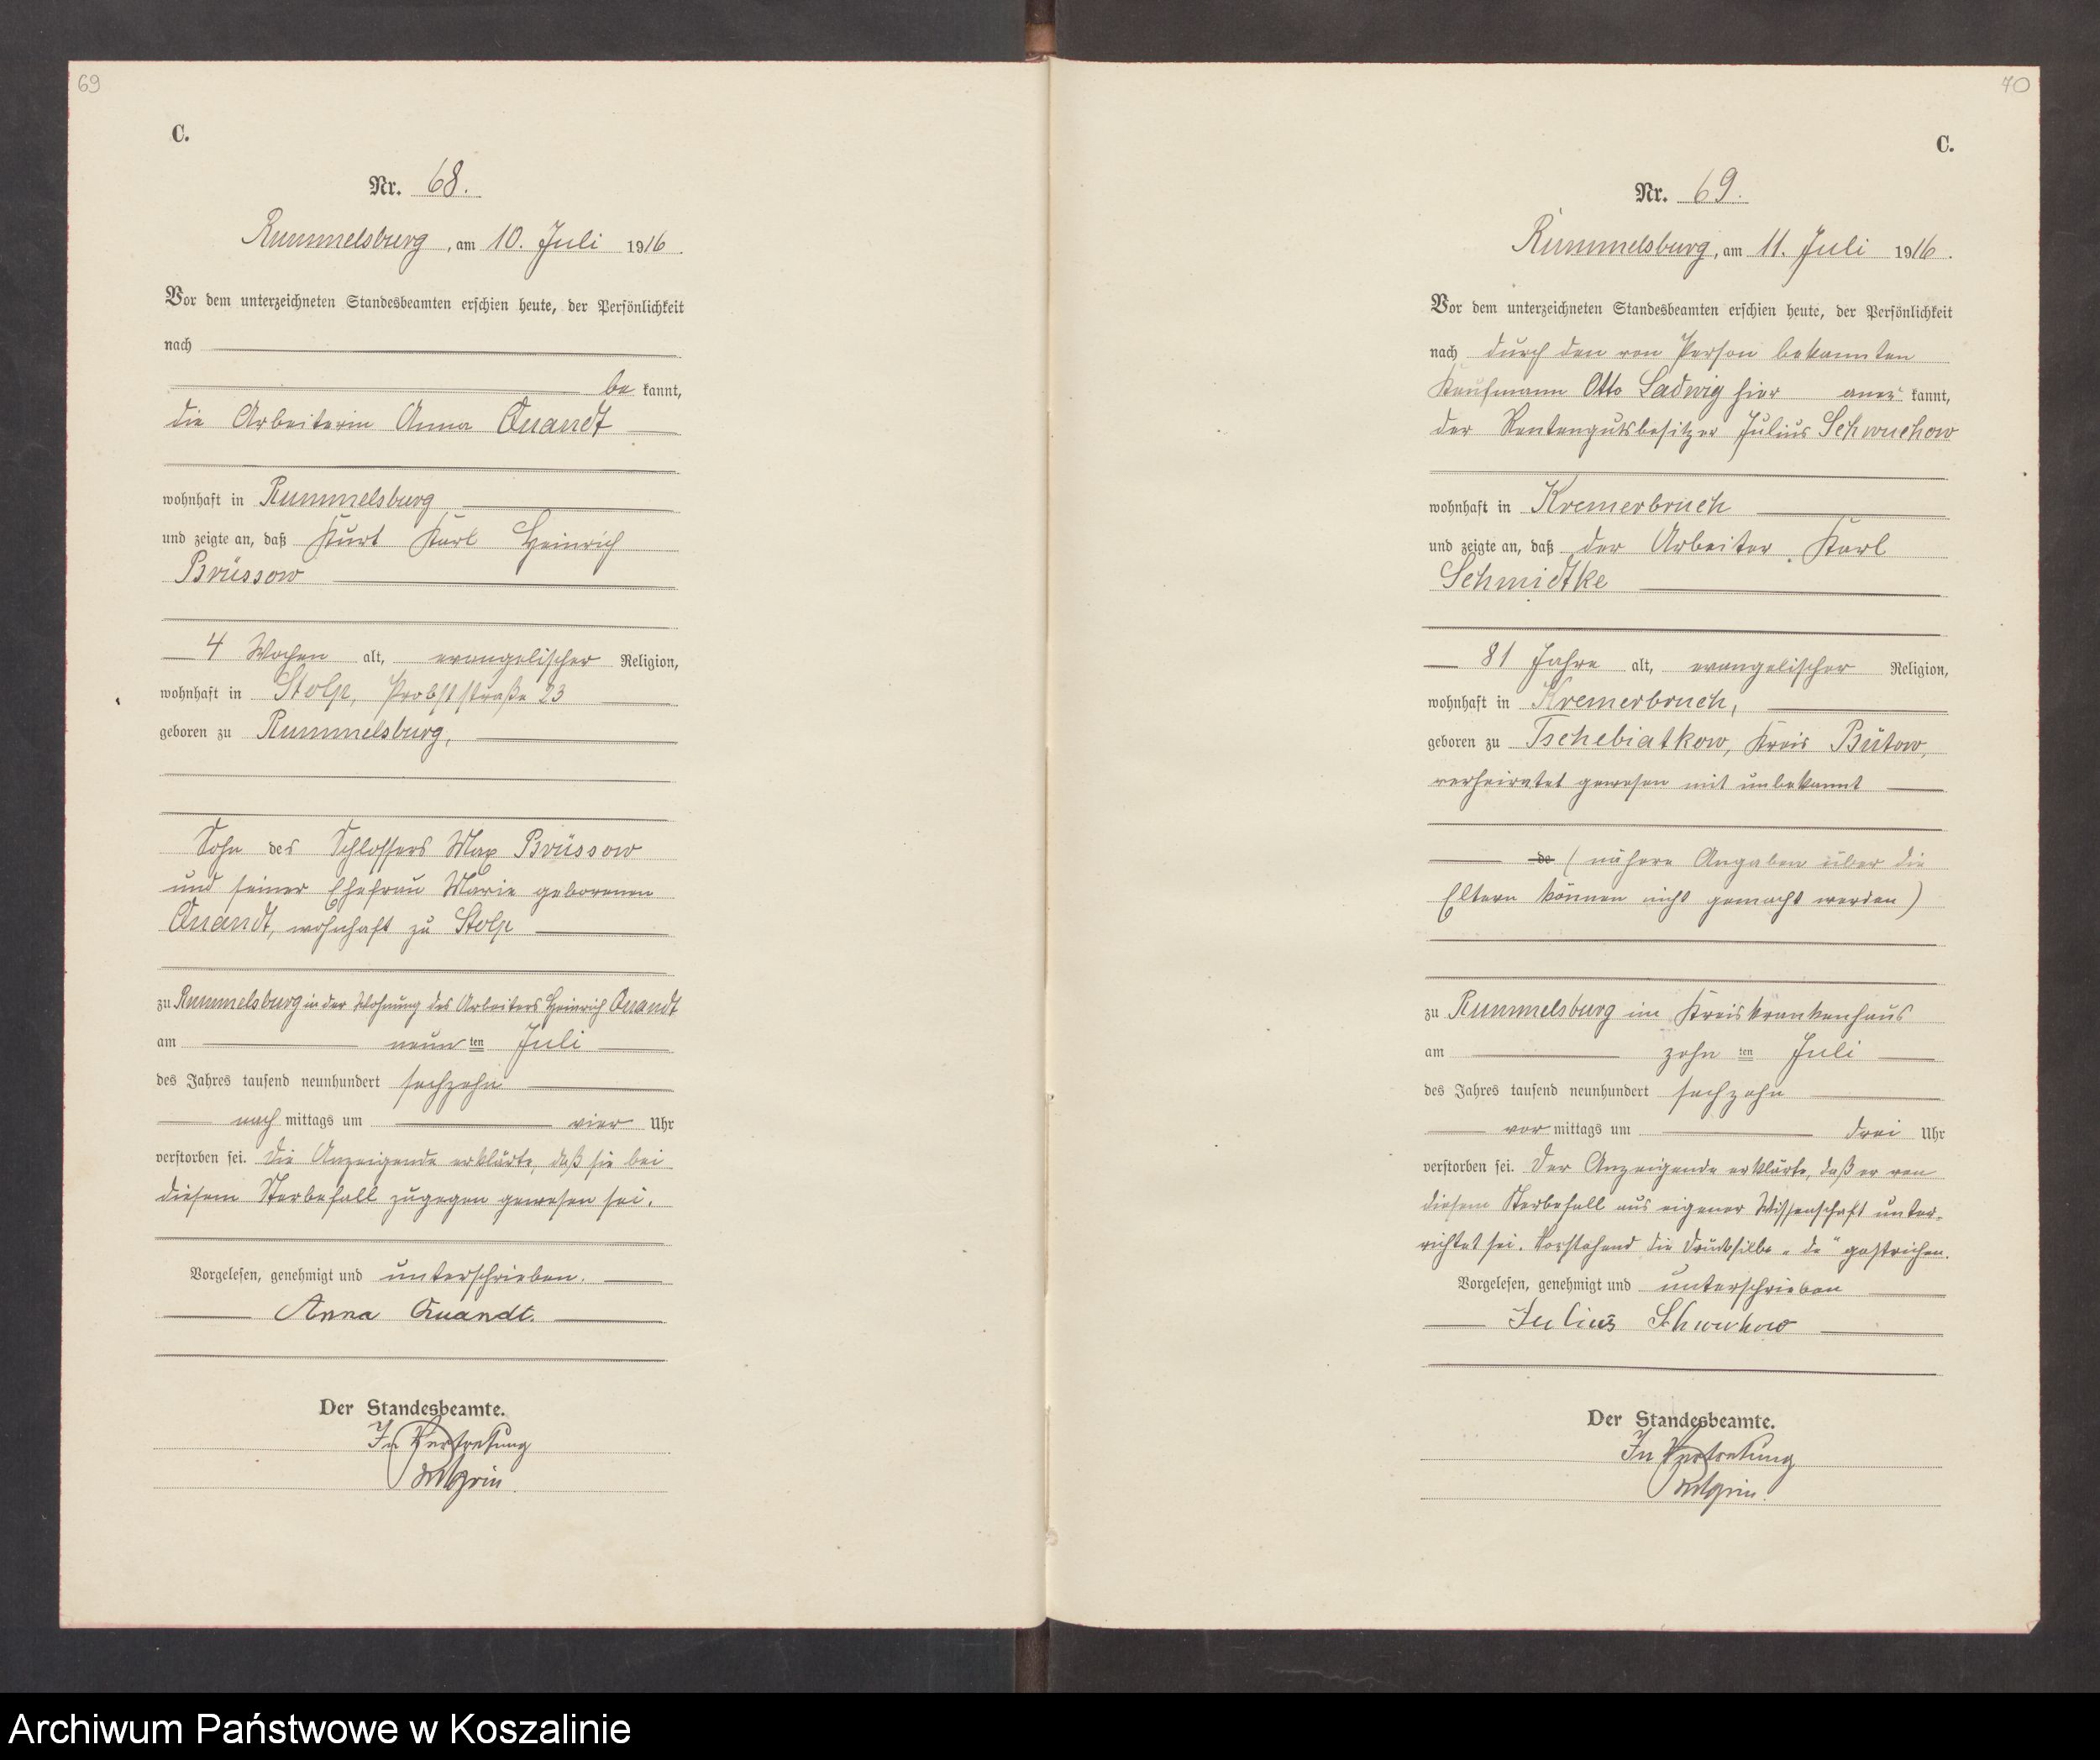 69
C.
Nr. 68.
Rummelsburg, am 10. Juli 1916.
Vor dem unterzeichneten Standesbeamten erschien heute, der Persönlichkeit
nach
be kannt,
die Arbeiterin Anna Quandt
wohnhaft in Rummelsburg
und zeigte an, daß Kurt Karl Heinrich
Brüssow
4 Wochen alt, evangelischer Religion,
wohnhaft in Stolp, Probststraße 23
geboren zu Rummelsburg,
Sohn des Schlossers Max Brüssow
und seiner Ehefrau Marie geborenen
Quandt, wohnhaft zu Stolp
zu Rummelsburg in der Wohnung des Arbeiters Heinrich Quandt
am neun ten Juli
des Jahres tausend neunhundert sechzehn
nach mittags um vier Uhr
verstorben sei. Die Anzeigende erklärte, daß sie bei
diesem Sterbefall zugegen gewesen sei.
Vorgelesen, genehmigt und unterschrieben.
Anna Quandt.
Der Standesbeamte.
In Vertretung
70
C.
Nr. 69.
Rummelsburg, am 11. Juli 1916.
Vor dem unterzeichneten Standesbeamten erschien heute, der Persönlichkeit
nach durch den von Person bekannten
Kaufmann Otto Ladwig hier aner kannt,
der Rentengutsbesitzer Julius Schwuchow
wohnhaft in Kremerbruch
und zeigte an, daß der Arbeiter Karl
Schmidtke
81 Jahre alt, evangelischer Religion,
wohnhaft in Kremerbruch,
geboren zu Tschebiatkow, Kreis Bütow,
verheiratet gewesen mit unbekannt
de (nähere Angaben über die
Eltern können nicht gemacht werden)
zu Rummelsburg im Kreiskrankenhaus
am zehn ten Juli
des Jahres tausend neunhundert sechzehn
vor mittags um drei Uhr
verstorben sei. Der Anzeigende erklärte, daß er von
diesem Sterbefall aus eigener Wissenschaft unter-
richtet sei. Vorstehend die Drucksilbe „de“ gestrichen.
Vorgelesen, genehmigt und unterschrieben
Julius Schwuchow
Der Standesbeamte.
In Vertretung
Archiwum Państwowe w Koszalinie